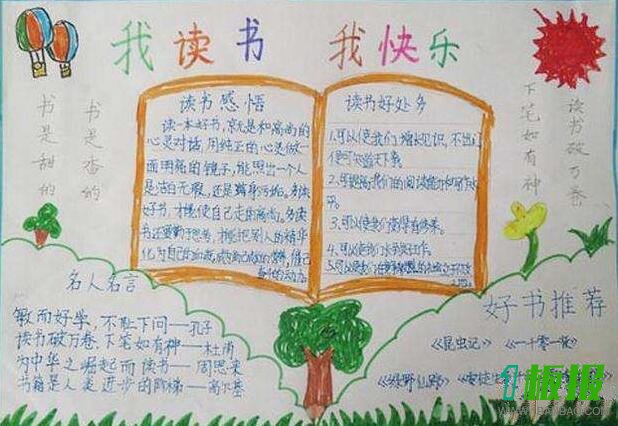 我读书 我快乐
书是甜的
书是香的
下笔如有神
读书破万卷
读书感悟
读一本好书,就是和高尚的
心灵对话,用纯正的心灵做一
面明亮的镜子,能照出一个人
是洁白无瑕,还是
好书,才能使自己走向高尚。多读
书还要勤于思考,才能把别人的精华
化为自己的
读书好处多
1.可以使我们增长见识,不出门
便可知天下事。
2.可提高我们的阅读能力和写作水
平。
3.可以使我们变得有修养。
4.可以使我们
5.可以
名人名言
敏而好学,不耻下问——孔子
读书破万卷,下笔如有神——杜甫
为中华之崛起而读书——周恩来
书籍是人类进步的阶梯——高尔基
好书推荐
《昆虫记》《一千零一夜》
《绿野仙踪》
板报